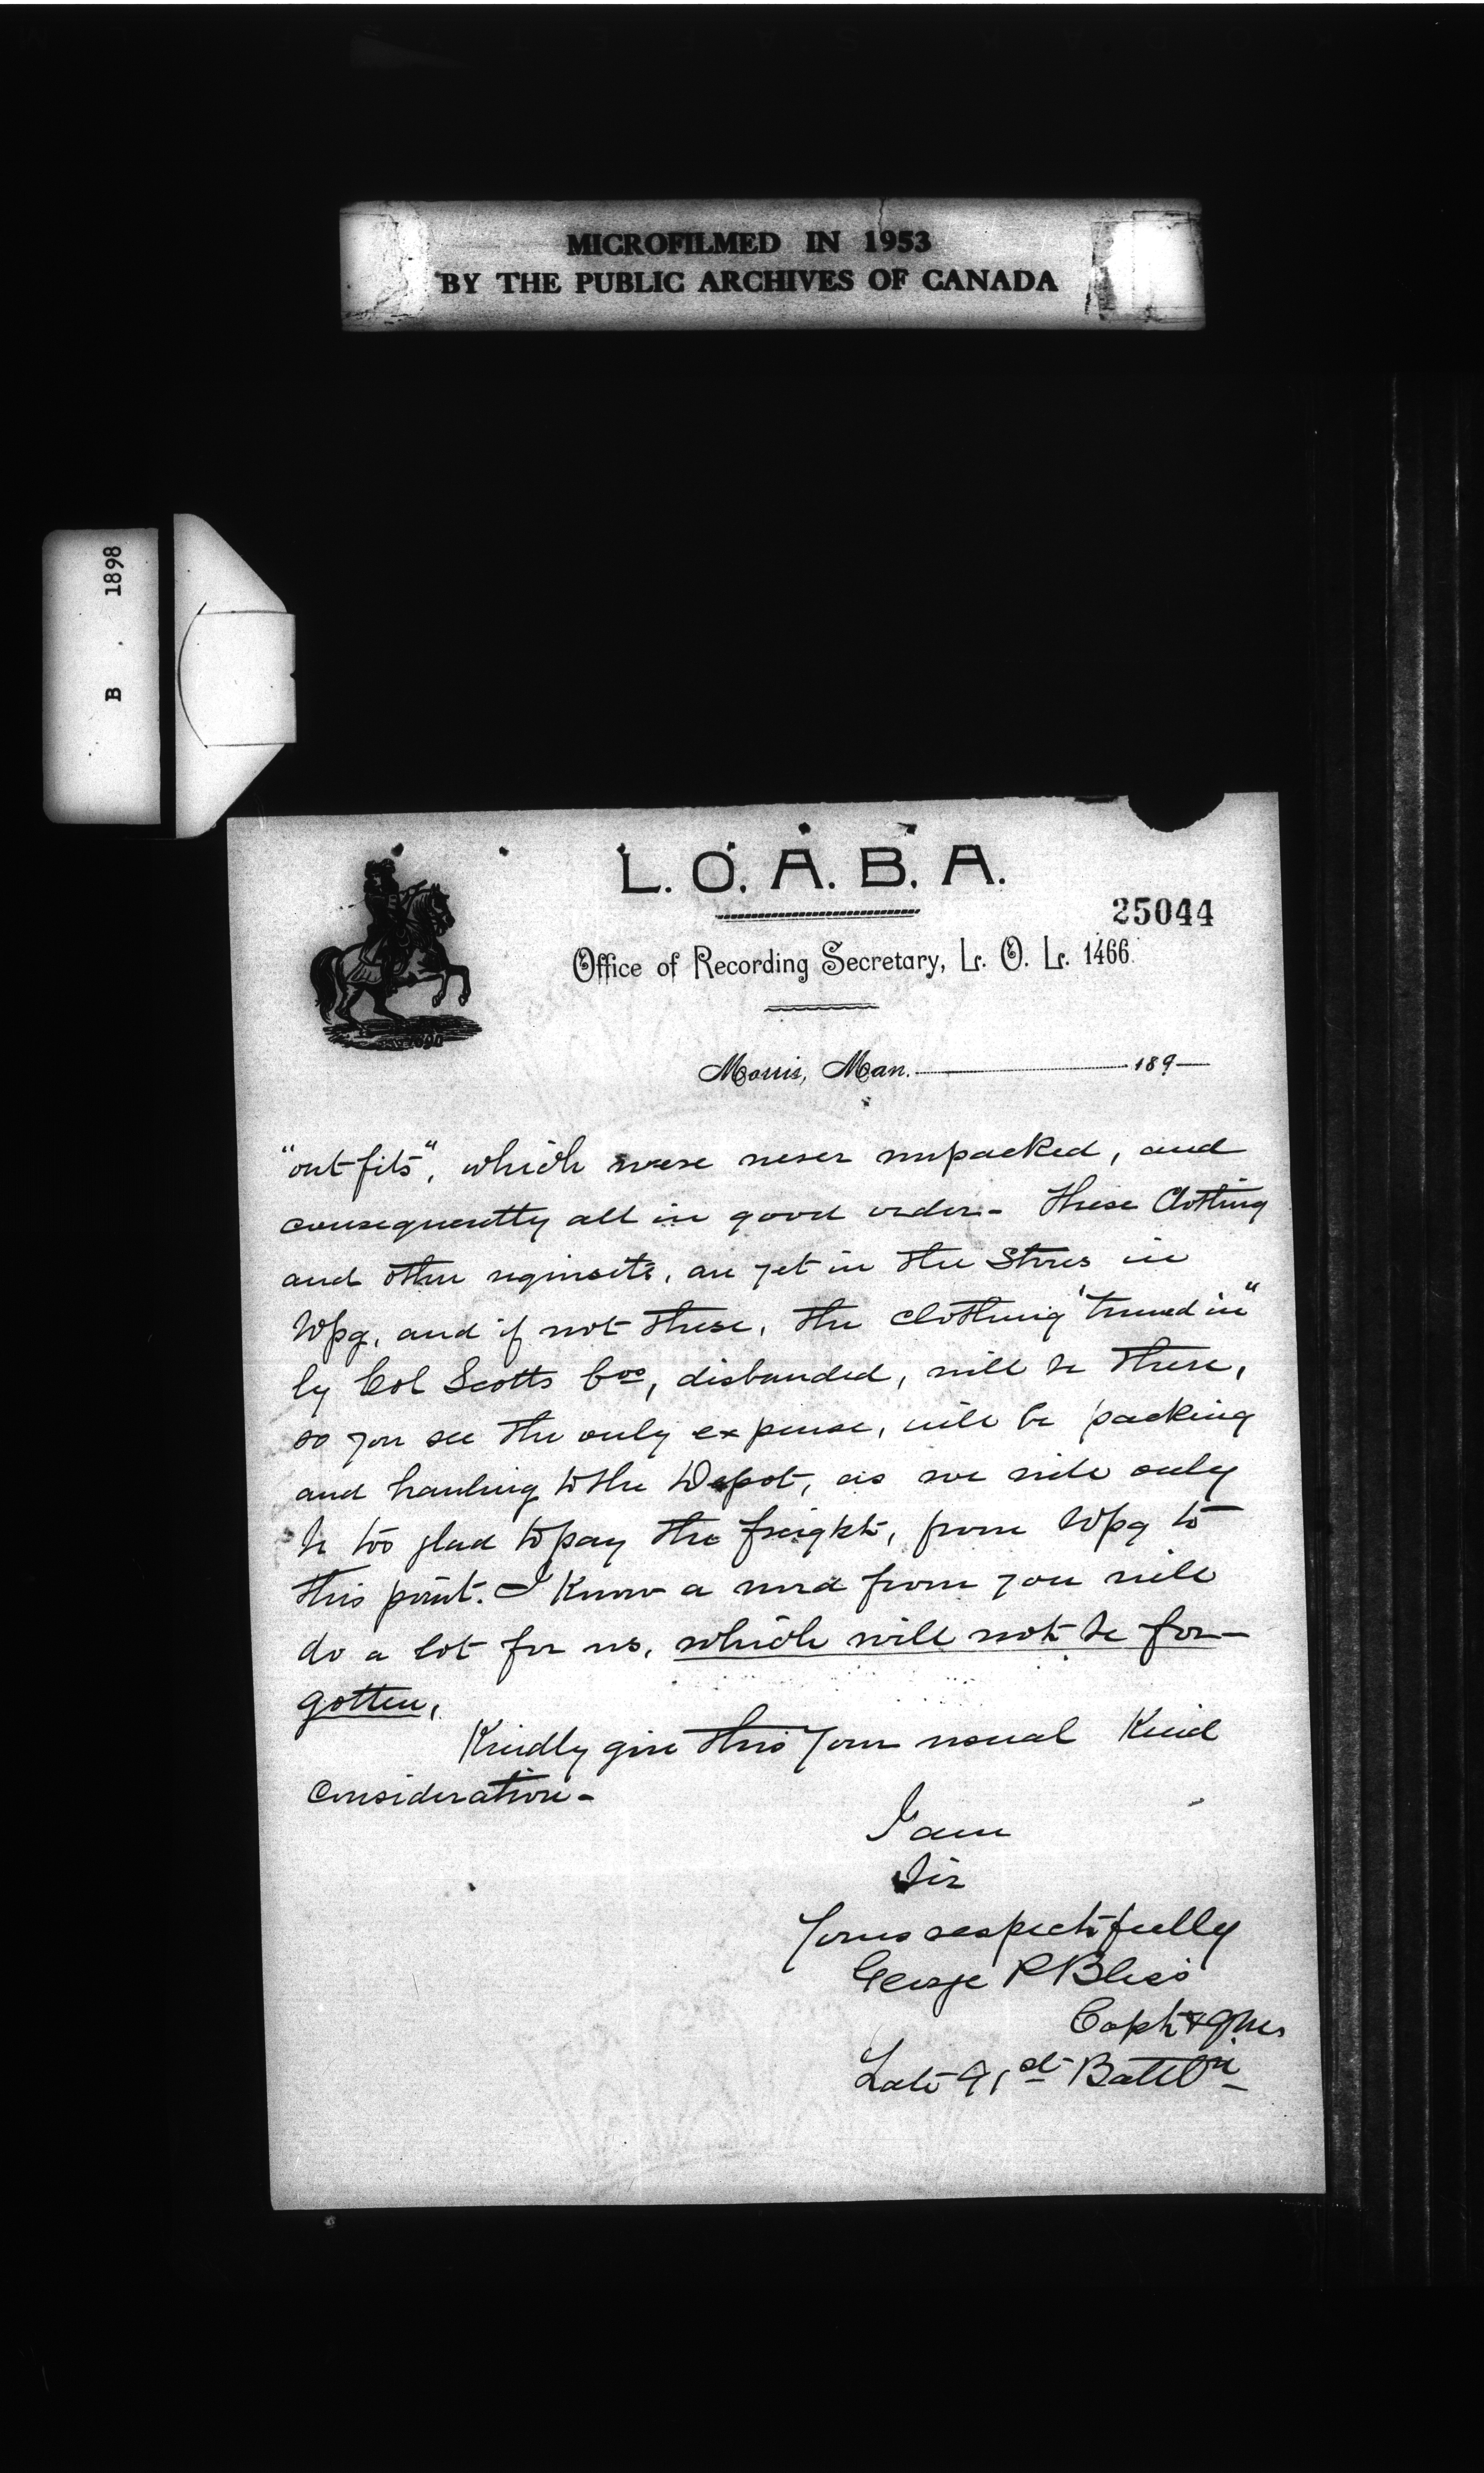 MICROFILMED IN 1953
BY THE PUBLIC ARCHIVES OF CANADA
B . 1898
L. O. A. B. A.
25044
Office of Recording Secretary, L. O. L. 1466.
Morris, Man. 189
"out fits", which were never unpacked, and
consequently all in good order - These Clothing
and other requisits, are yet in the Stores in
Wpg, and if not these, the clothing "turned in"
by Col Scotts Cos, disbanded, will be there,
so you see the only expense, will be packing
and hauling to the Depot, as we will only
be too glad to pay the freight, from Wpg to
this point. I know a word from you will
do a lot for us, which will not be for-
gotten,
Kindly give this your usual Kind
Consideration -
I am
Sir
Yours respectfully
George R Bliss
Capt & QM
Late 91st Battln